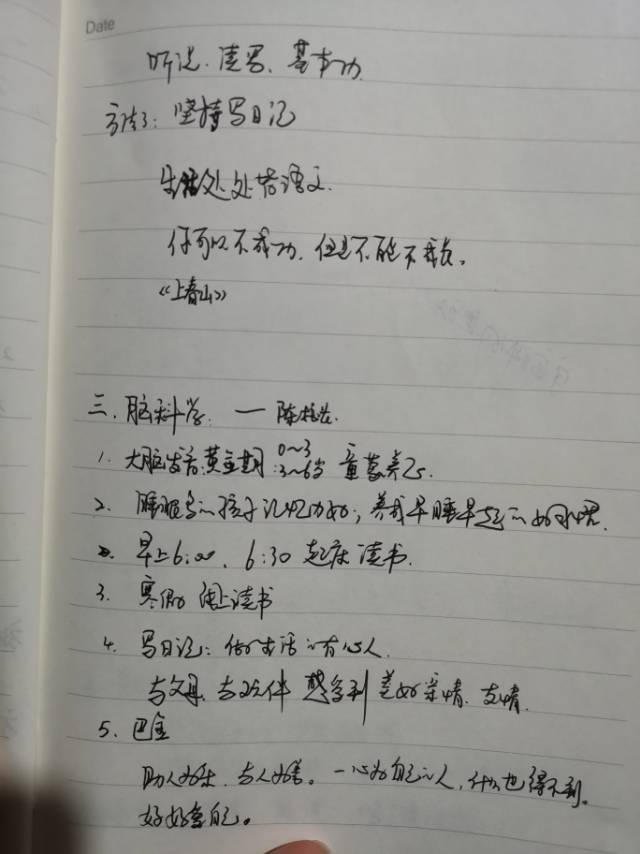 Date
听说、读写、基本功
方法：坚持写日记
生活处处皆语文.
你可以不成功,但是不能不成长。
《上春山》
三、脑科学. — 陈
1. 大脑发育黄金期: 0~3 3~6岁 童蒙养正.
2. 睡眠好的孩子记忆力好; 养成早睡早起的好习惯.
早上6:00、6:30 起床 读书.
3. 寒假 线上读书
4. 写日记: 做生活的有心人.
与父母、与伙伴 美好亲情、友情
5. 巴金
助人为乐、与人为善。一心为自己的人,什么也得不到。
好好爱自己。